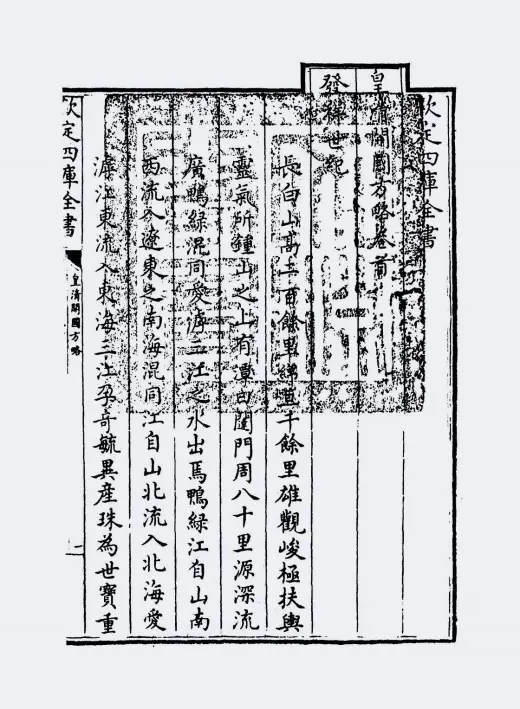 欽定四庫全書
皇清開國方略卷首
發祥世紀
長白山高二百餘里綿亘千餘里雄觀峻極扶輿
靈氣所鍾山之上有潭曰闥門周八十里源深流
廣鴨綠混同愛滹三江之水出焉鴨綠江自山南
西流入遼東之南海混同江自山北流入北海愛
滹江東流入東海三江孕奇毓異產珠為世寶重
欽定四庫全書
皇清開國方略
一